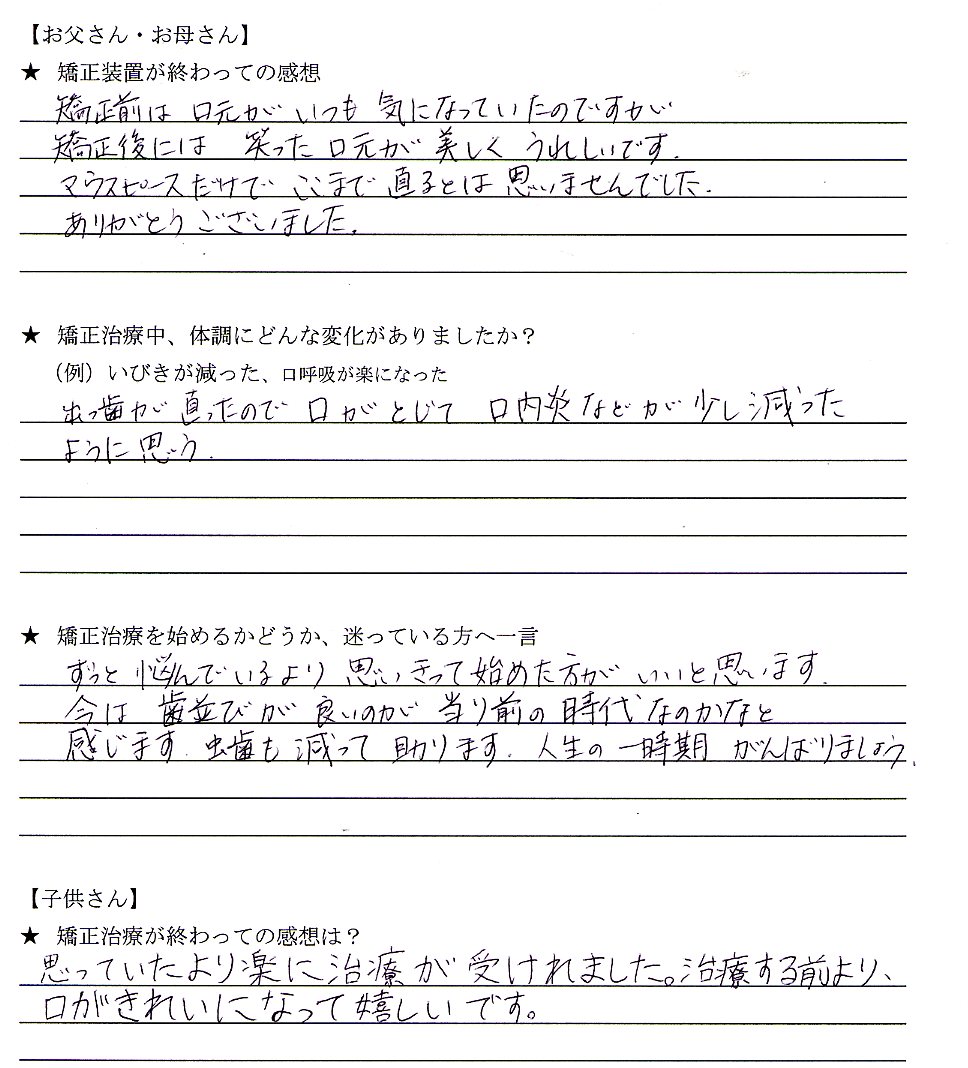 【お父さん・お母さん】
★ 矯正装置が終わっての感想
矯正前は 口元が いつも 気になっていたのですが
矯正後には 笑った口元が 美しく うれしいです.
マウスピースだけで ここまで 直るとは 思いませんでした.
ありがとう ございました.
★ 矯正治療中、体調にどんな変化がありましたか？
（例）いびきが減った、口呼吸が楽になった
出っ歯が 直ったので 口が とじて 口内炎 などが 少し減った
ように思う.
★ 矯正治療を始めるかどうか、迷っている方へ一言
ずっと 悩んでいるより 思いきって始めた方が いいと思います.
今は 歯並びが 良いのが 当り前の 時代 なのかなと
感じます. 虫歯も 減って 助ります. 人生の 一時期 がんばりましょう.
【子供さん】
★ 矯正治療が終わっての感想は？
思っていたより楽に治療が受けれました。治療する前より、
口がきれいになって嬉しいです。